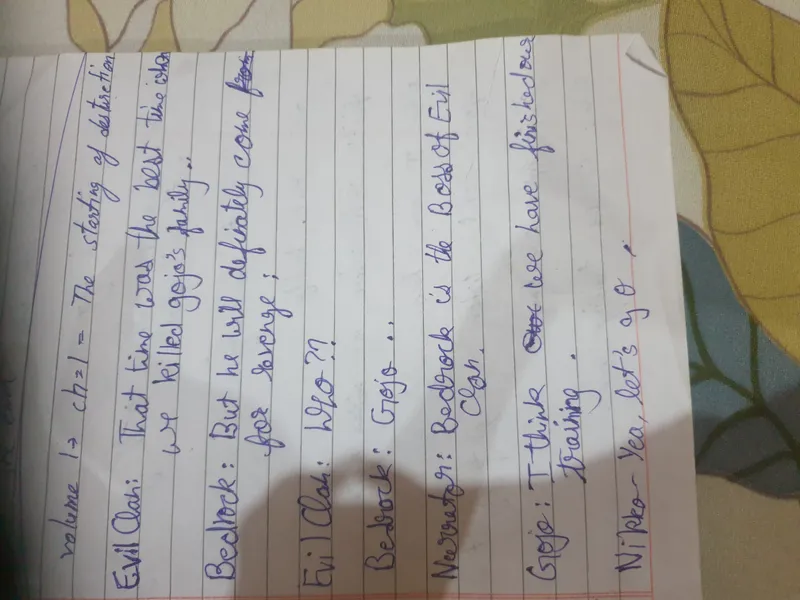 volume 1 → ch=1 = The starting of destruction
Evil Clan: That time was the best time when
we killed gojo's family..
Bedrock: But he will definately come
for revenge;
Evil Clan: Who??
Bedrock: Gojo..
Narrator: Bedrock is the Boss of Evil
Clan.
Gojo: I think we have finished our
training.
Nikko- Yea, let's go.